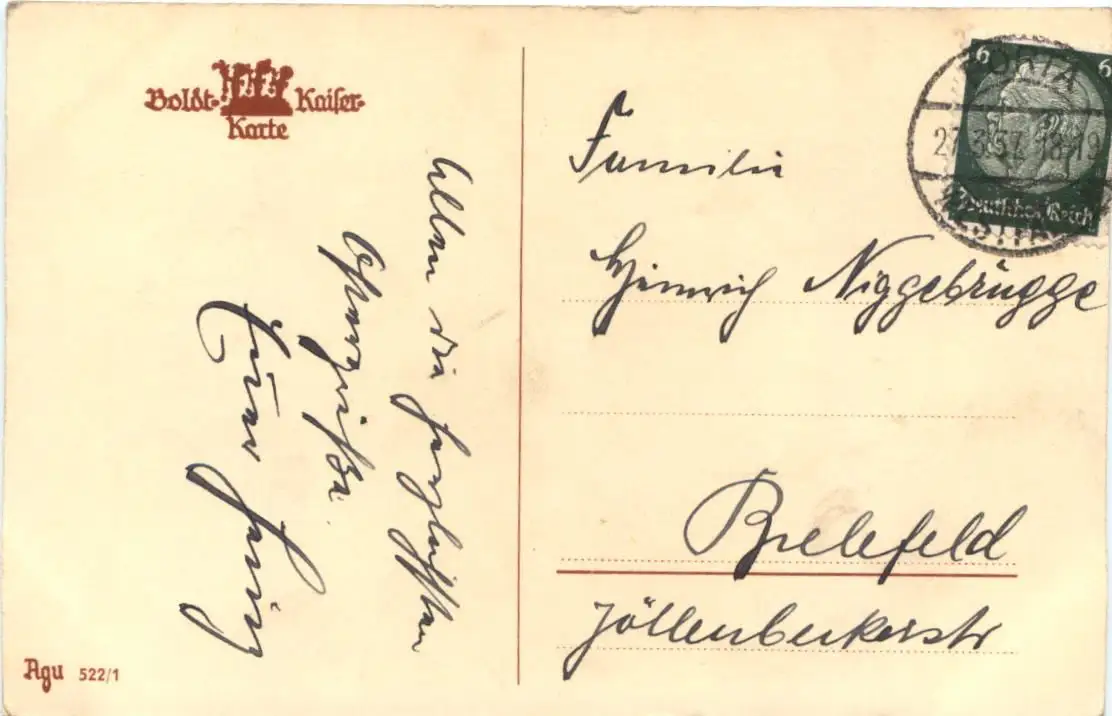 Boldt- Kaiser-
Karte
Allen die herzlichsten
Ostergrüße.
Euer
Familie
Heinrich Niggebrügge
Bielefeld
Jöllenbeckerstr
6 6
27.3.37.18-19
Deutsches Reich
Agu 522/1